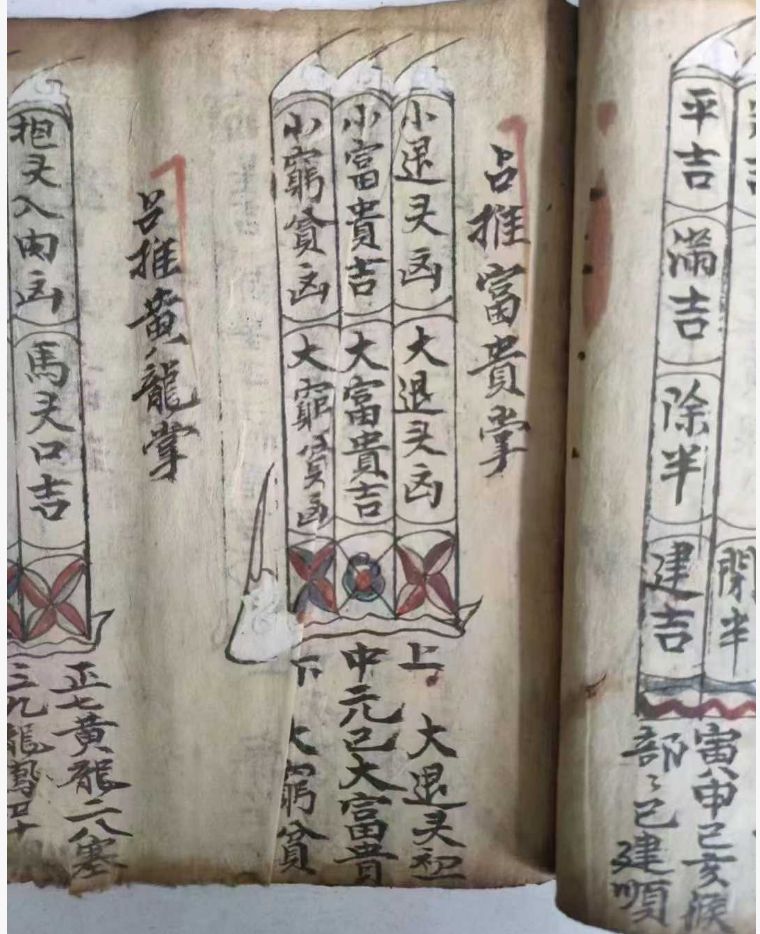 平吉
滿吉
除半
建吉
閉半
寅八申己亥
部〻己建順
吕推富貴掌
小退久凶
大退久凶
小富貴吉
大富貴吉
小窮貧凶
大窮貧凶
上 大退久初
中元己大富貴
下 大窮貧
吕推黄龍掌
馬久口吉
抱久入肉凶
正七黄龍二八塞
三九龍